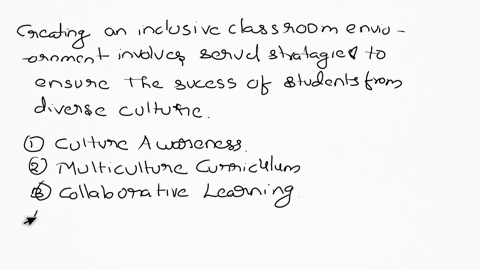 Creating an inclusive classroom envio-
ornment involves servel stratagies to
ensure The sucess of students from
diverse culture.
① Culture Awareness.
② Multiculture Curriculum
③ Collaborative Learning.